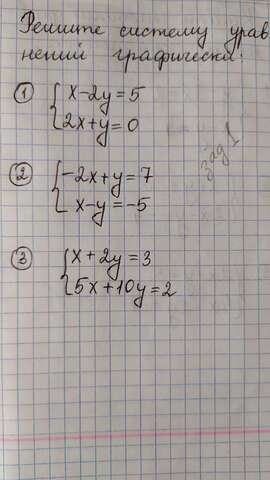 Решите систему урав
нений графически:
① { x-2y=5
2x+y=0
зад 1
② { -2x+y=7
x-y=-5
③ { x+2y=3
5x+10y=2